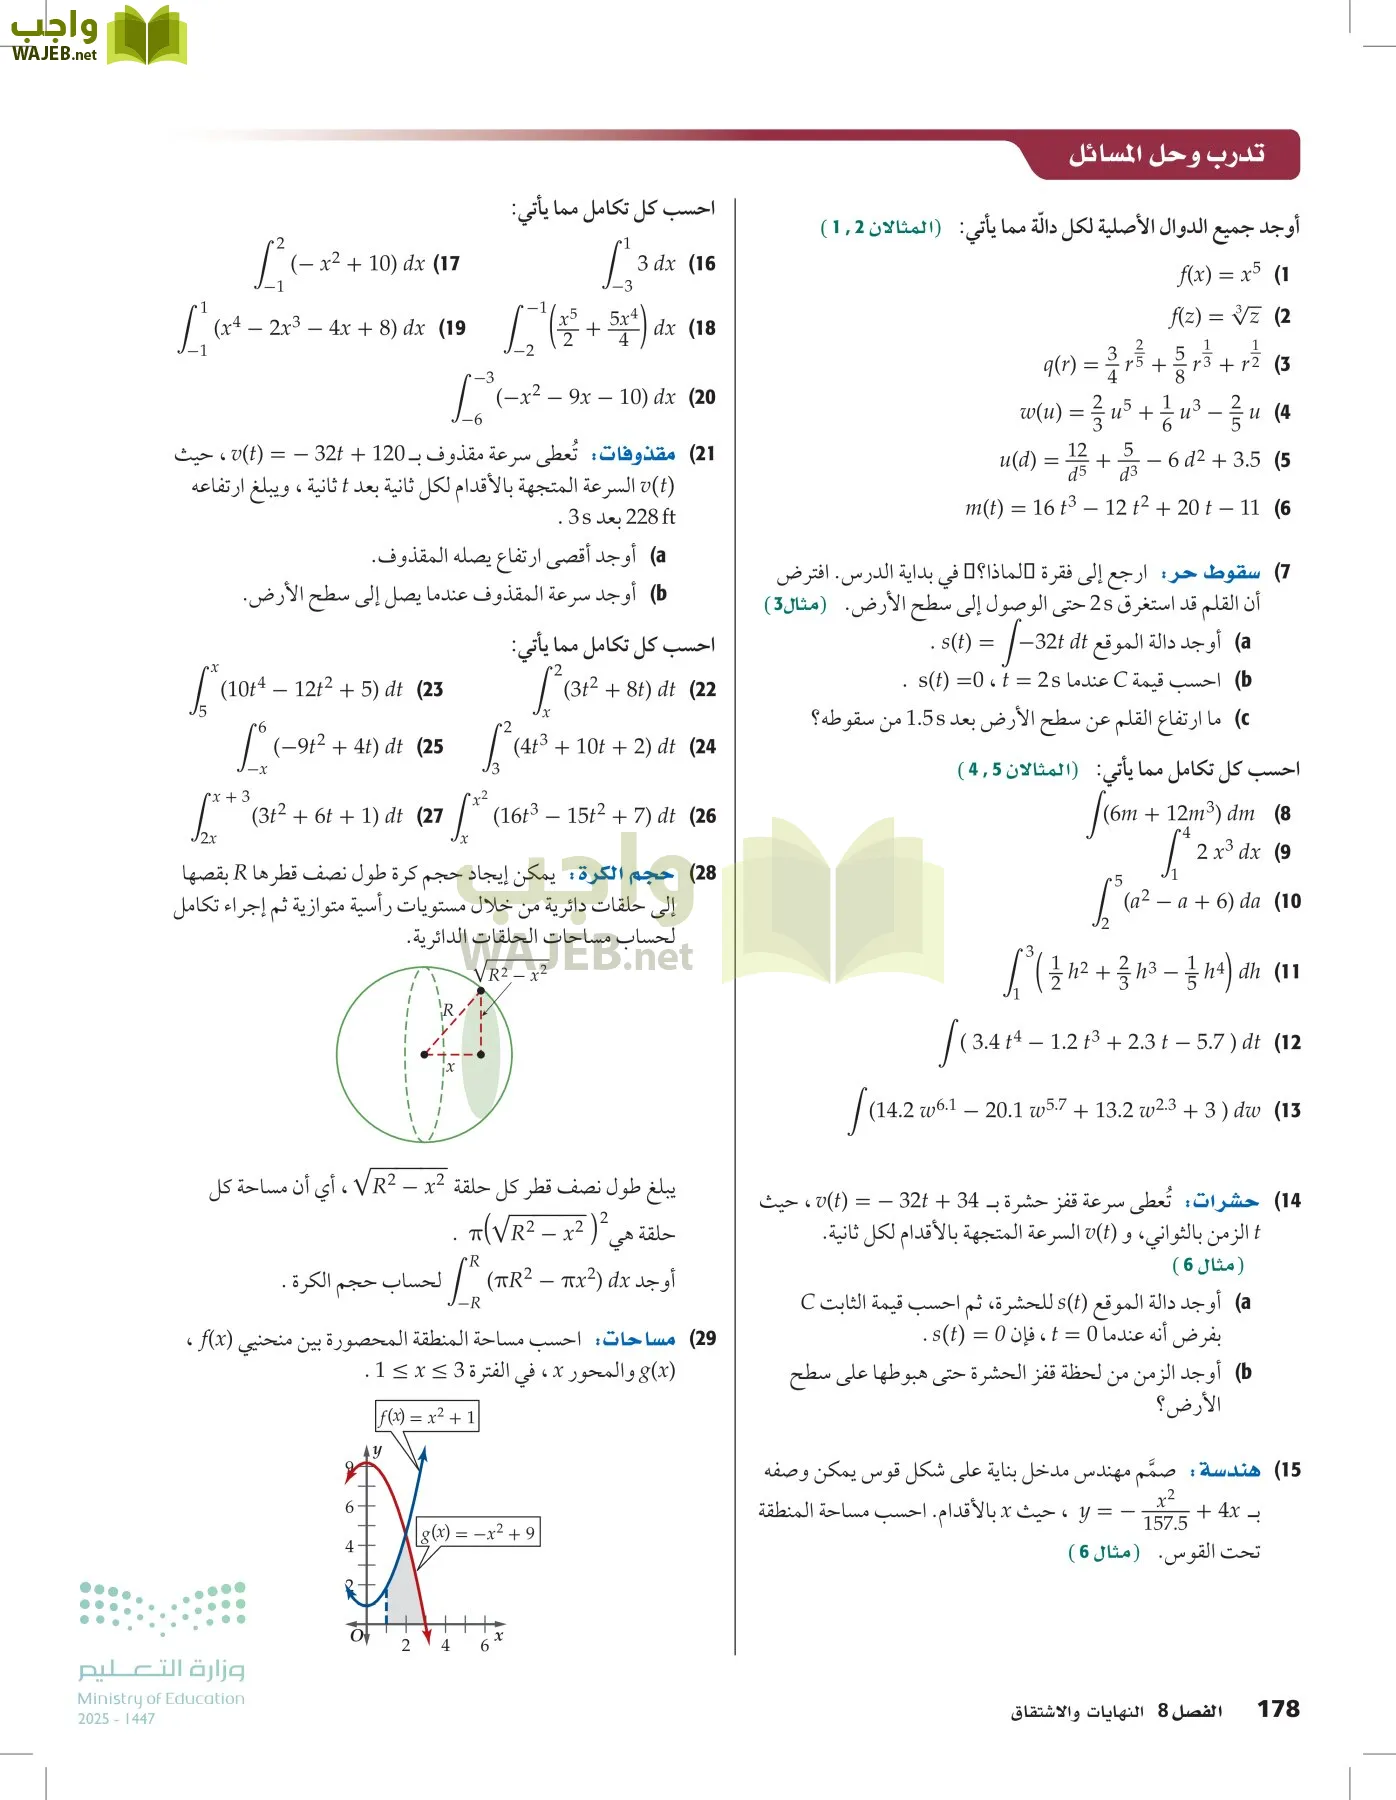 واجب
WAJEB.net
تدرب وحل المسائل
أوجد جميع الدوال الأصلية لكل دالّة مما يأتي: (المثالان 2 , 1)
1) f(x) = x⁵
2) f(z) = ∛z
3) q(r) = 3/4 r^(2/5) + 5/8 r^(1/3) + r^(1/2)
4) w(u) = 2/3 u⁵ + 1/6 u³ − 2/5 u
5) u(d) = 12/d⁵ + 5/d³ − 6 d² + 3.5
6) m(t) = 16 t³ − 12 t² + 20 t − 11
7) سقوط حر: ارجع إلى فقرة لماذا؟ في بداية الدرس. افترض
أن القلم قد استغرق 2 s حتى الوصول إلى سطح الأرض. (مثال 3)
a) أوجد دالة الموقع s(t) = ∫−32t dt .
b) احسب قيمة C عندما t = 2 s ، s(t) =0 .
c) ما ارتفاع القلم عن سطح الأرض بعد 1.5 s من سقوطه؟
احسب كل تكامل مما يأتي: (المثالان 5 , 4)
8) ∫(6m + 12m³) dm
9) ∫₁⁴ 2 x³ dx
10) ∫₂⁵ (a² − a + 6) da
11) ∫₁³ (1/2 h² + 2/3 h³ − 1/5 h⁴) dh
12) ∫( 3.4 t⁴ − 1.2 t³ + 2.3 t − 5.7 ) dt
13) ∫(14.2 w^6.1 − 20.1 w^5.7 + 13.2 w^2.3 + 3 ) dw
14) حشرات: تُعطى سرعة قفز حشرة بـ v(t) = − 32t + 34 ، حيث
t الزمن بالثواني، و v(t) السرعة المتجهة بالأقدام لكل ثانية.
(مثال 6)
a) أوجد دالة الموقع s(t) للحشرة، ثم احسب قيمة الثابت C
بفرض أنه عندما t = 0 ، فإن s(t) = 0 .
b) أوجد الزمن من لحظة قفز الحشرة حتى هبوطها على سطح
الأرض؟
15) هندسة: صمَّم مهندس مدخل بناية على شكل قوس يمكن وصفه
بـ y = − x²/157.5 + 4x ، حيث x بالأقدام. احسب مساحة المنطقة
تحت القوس. (مثال 6)
احسب كل تكامل مما يأتي:
16) ∫₋₃¹ 3 dx
17) ∫₋₁² (− x² + 10) dx
18) ∫₋₂⁻¹ (x⁵/2 + 5x⁴/4) dx
19) ∫₋₁¹ (x⁴ − 2x³ − 4x + 8) dx
20) ∫₋₆⁻³ (−x² − 9x − 10) dx
21) مقذوفات: تُعطى سرعة مقذوف بـ v(t) = − 32t + 120 ، حيث
v(t) السرعة المتجهة بالأقدام لكل ثانية بعد t ثانية ، ويبلغ ارتفاعه
228 ft بعد 3 s .
a) أوجد أقصى ارتفاع يصله المقذوف.
b) أوجد سرعة المقذوف عندما يصل إلى سطح الأرض.
احسب كل تكامل مما يأتي:
22) ∫ₓ² (3t² + 8t) dt
23) ∫₅ˣ (10t⁴ − 12t² + 5) dt
24) ∫₃² (4t³ + 10t + 2) dt
25) ∫₋ₓ⁶ (−9t² + 4t) dt
26) ∫ₓ^(x²) (16t³ − 15t² + 7) dt
27) ∫₂ₓ^(x + 3) (3t² + 6t + 1) dt
28) حجم الكرة: يمكن إيجاد حجم كرة طول نصف قطرها R بقصها
إلى حلقات دائرية من خلال مستويات رأسية متوازية ثم إجراء تكامل
لحساب مساحات الحلقات الدائرية.
√(R² − x²)
R
x
يبلغ طول نصف قطر كل حلقة √(R² − x²) ، أي أن مساحة كل
حلقة هي π(√(R² − x²))² .
أوجد ∫₋R^R (πR² − πx²) dx لحساب حجم الكرة .
29) مساحات: احسب مساحة المنطقة المحصورة بين منحنيي f(x) ،
g(x) والمحور x ، في الفترة 1 ≤ x ≤ 3 .
f(x) = x² + 1
y
9
6
g(x) = −x² + 9
4
2
O 2 4 6 x
واجب
WAJEB.net
وزارة التعليم
Ministry of Education
2025 - 1447
178 الفصل 8 النهايات والاشتقاق